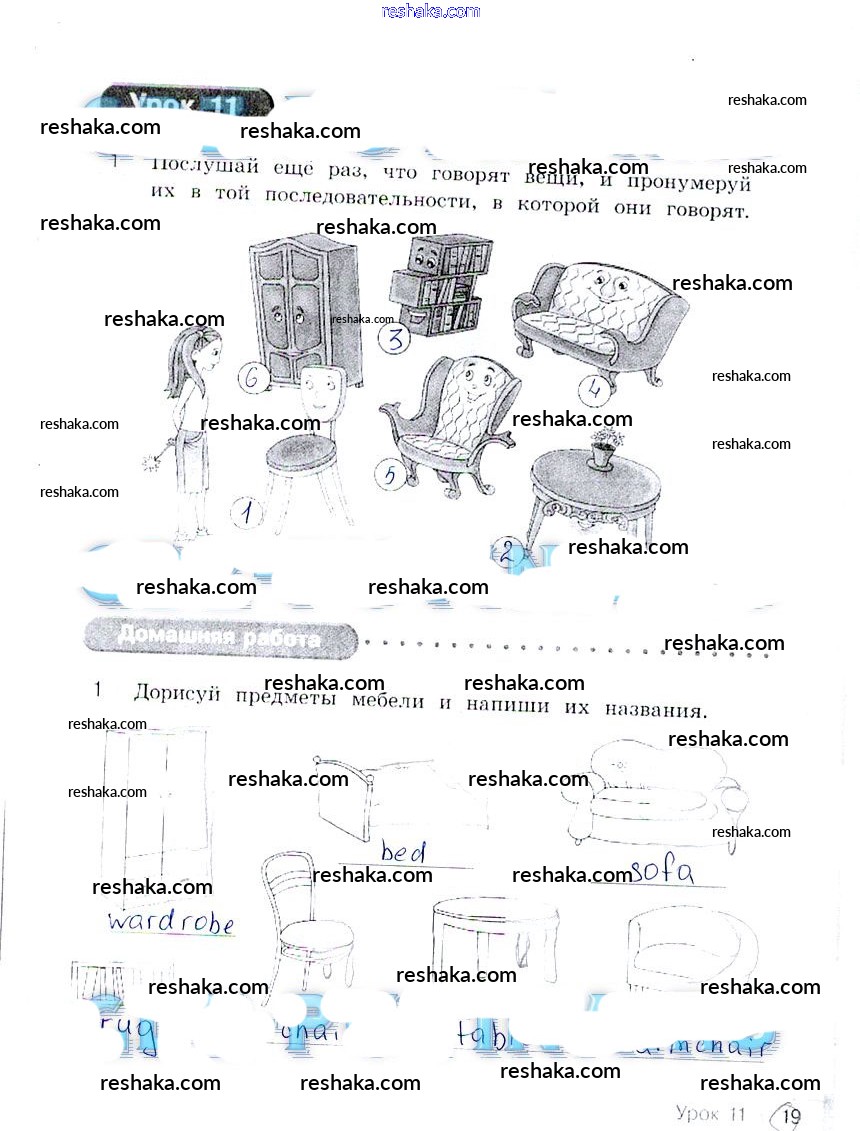 reshaka.com
Урок 11
reshaka.com
reshaka.com
reshaka.com
1 Послушай ещё раз, что говорят вещи, и пронумеруй
reshaka.com
reshaka.com
их в той последовательности, в которой они говорят.
reshaka.com
reshaka.com
reshaka.com
reshaka.com
reshaka.com
3
6
4
reshaka.com
reshaka.com
reshaka.com
reshaka.com
reshaka.com
5
reshaka.com
1
2
reshaka.com
reshaka.com
reshaka.com
Домашняя работа
reshaka.com
reshaka.com
reshaka.com
1 Дорисуй предметы мебели и напиши их названия.
reshaka.com
reshaka.com
reshaka.com
reshaka.com
reshaka.com
reshaka.com
bed
sofa
reshaka.com
reshaka.com
reshaka.com
wardrobe
reshaka.com
reshaka.com
reshaka.com
rug
chair
tab
armchair
reshaka.com
reshaka.com
reshaka.com
reshaka.com
Урок 11 19